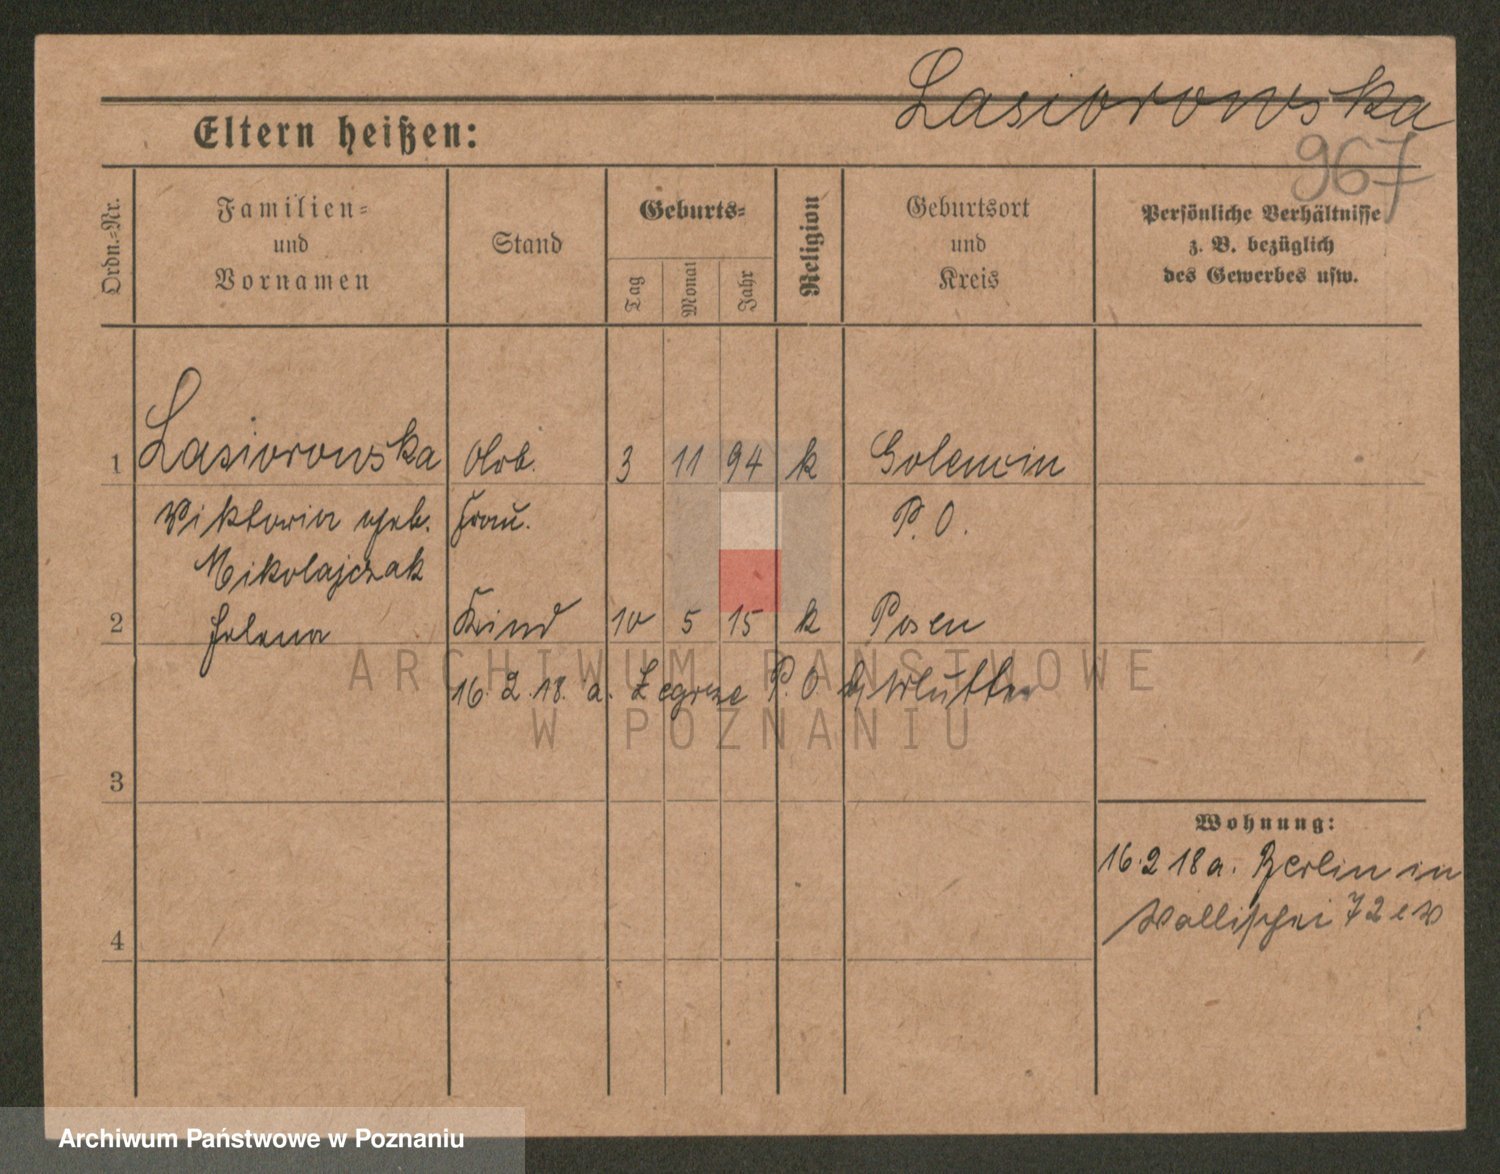 Lasiorowska
967
Eltern heißen:
Ordn.-Nr.
Familien-
und
Vornamen
Stand
Geburts-
Tag
Monat
Jahr
Religion
Geburtsort
und
Kreis
Persönliche Verhältnisse
z. B. bezüglich
des Gewerbes usw.
1 Lasiorowska Arb. 3 11 94 k Golencin
Viktoria geb. Frau. P. O.
Mikolajczak
2 Helena Kind 10 5 15 k Posen
16. 2. 18. a. Zegrze P. O. Mutter
3
Wohnung:
16. 2 18 a. Berlin in
Wallischei 72
4
ARCHIWUM PAŃSTWOWE
W POZNANIU
Archiwum Państwowe w Poznaniu